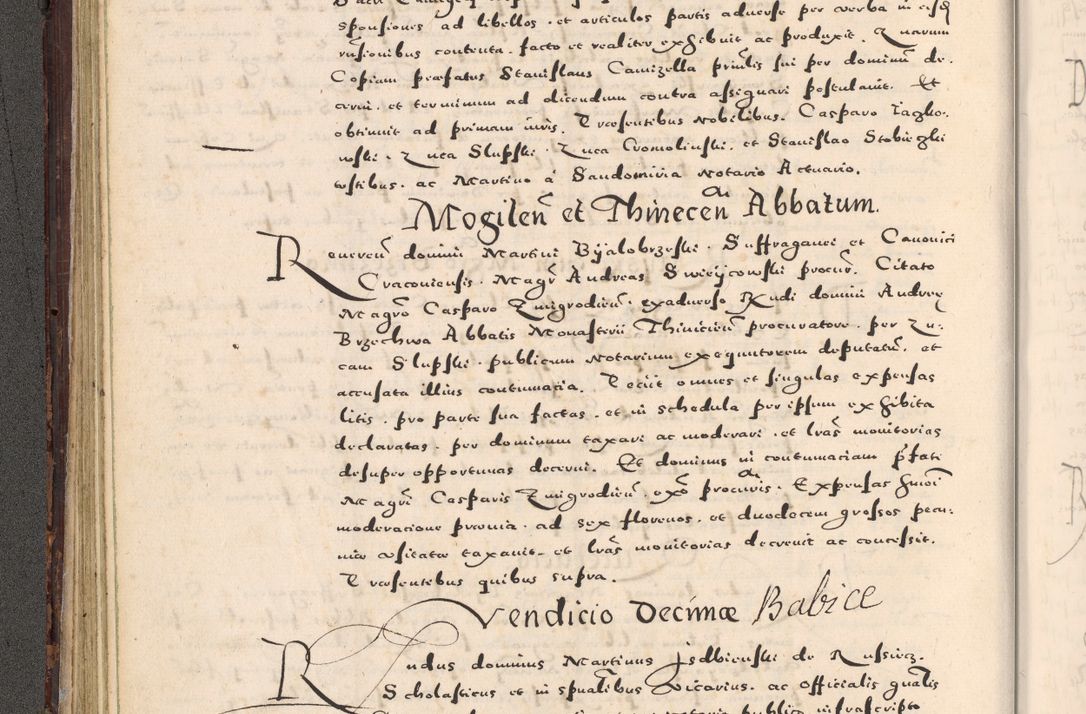 sponsiones ad libellos. et articulos partis aduerse per verba in eisd
rusionibus contenta. facto et realiter exhibuit ac produxit. Quarum
Copiam praefatus Stanislaus Camizella priulis sui per dominũ de-
cerni. et terminum ad dicendum contra assignari postulauit. Et
obtinuit ad primam iuris. Praesentibus Nobilibus. Casparo Iaglo-
wski. Luca Slupski. Luca Cromolinski. et Stanislao Stobieghi
testibus. ac Martino á Sandomiria Notario Actuario.
Mogilen̄ et Thinecen̄ Abbatum.
Reueren̄ domini Martini Bijalobrzeski. Suffraganei et Canonici
Cracouiensis. Magr̃ Andreas Swieijcowski procur̃. Citato
Magrõ Casparo Zmigrodien̄. exaduerso Rndi domini Andreę
Brzechwa Abbatis Monasterii Thinicien̄ procuratore. per Lu-
cam Slupski. publicum Notarium exequutorem deputatũ. et
accusata illius contumacia. Petiit omnes et singulas expensas
litis. pro parte sua factas. et in schedula per ipsum exhibita
declaratas. per dominum taxari ac moderari. et lrãs monitorias
desuper opportunas decerni. Et dominus in contumaciam pfati
Magrĩ Casparis Zmigrodien̄. exõ procuris. Expensas hmoĩ
moderacione praeuia. ad sex florenos. et duodecem grossos pecu-
niae vsitatae taxauit. et lrãs monitorias decreuit ac concessit.
Praesentibus quibus supra.
Vendicio Decimae Babice
Rndus dominus Martinus Isdbienski de Russiecz.
Scholasticus et in spualibus Vicarius. ac Officialis gnalis
publico infrascripto